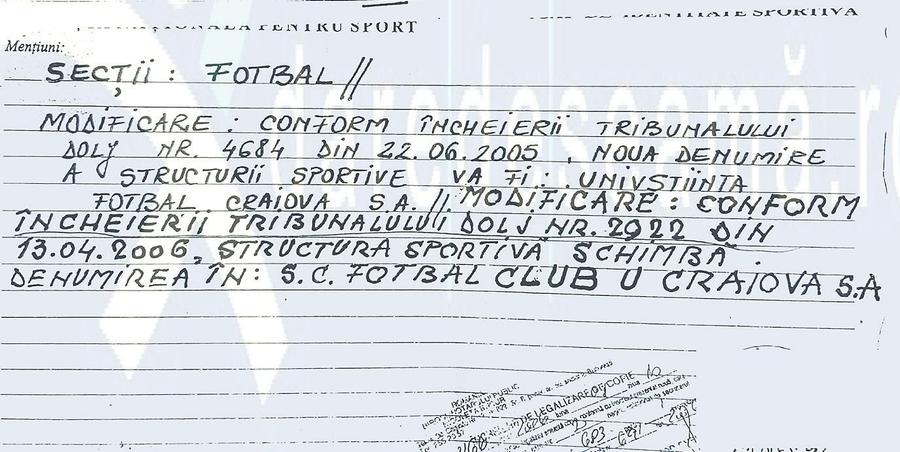 PENTRU SPORT
SPORTIVA
Mențiuni:
SECȚII : FOTBAL //
MODIFICARE : CONFORM ÎNCHEIERII TRIBUNALULUI
DOLJ NR. 4684 DIN 22.06.2005 , NOUA DENUMIRE
A STRUCTURII SPORTIVE VA FI : UNIVSTIINTA
FOTBAL CRAIOVA S.A. //. MODIFICARE : CONFORM
ÎNCHEIERII TRIBUNALULUI DOLJ NR. 2922 DIN
13.04.2006, STRUCTURA SPORTIVĂ SCHIMBĂ .
DENUMIREA ÎN : S.C. FOTBAL CLUB U CRAIOVA S.A
daredeseamă.ro
DE LEGALIZARE DE COPIE